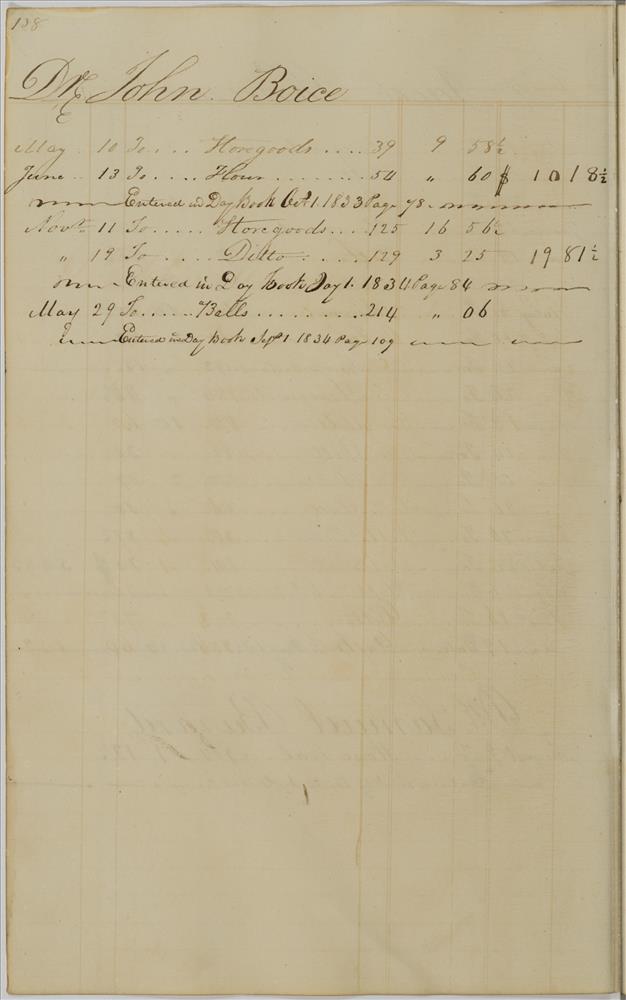 128
Dr. John Boice
May 10 To .... Storegoods .... 39 9 58½
June 13 To .... Flour ........ 54 " 60 $ 10 18½
Entered in Day Book Oct 1. 1833 Page 78.
Novr 11 To ..... Storegoods .... 125 16 56½
" 19 To ..... Ditto ..... 129 3 25 19 81½
Entered in Day book Jay 1. 1834 Page 84
May 29 To ..... Balls ......... 214 " 06
Entered in Day Book Sept 1 1834 Page 109